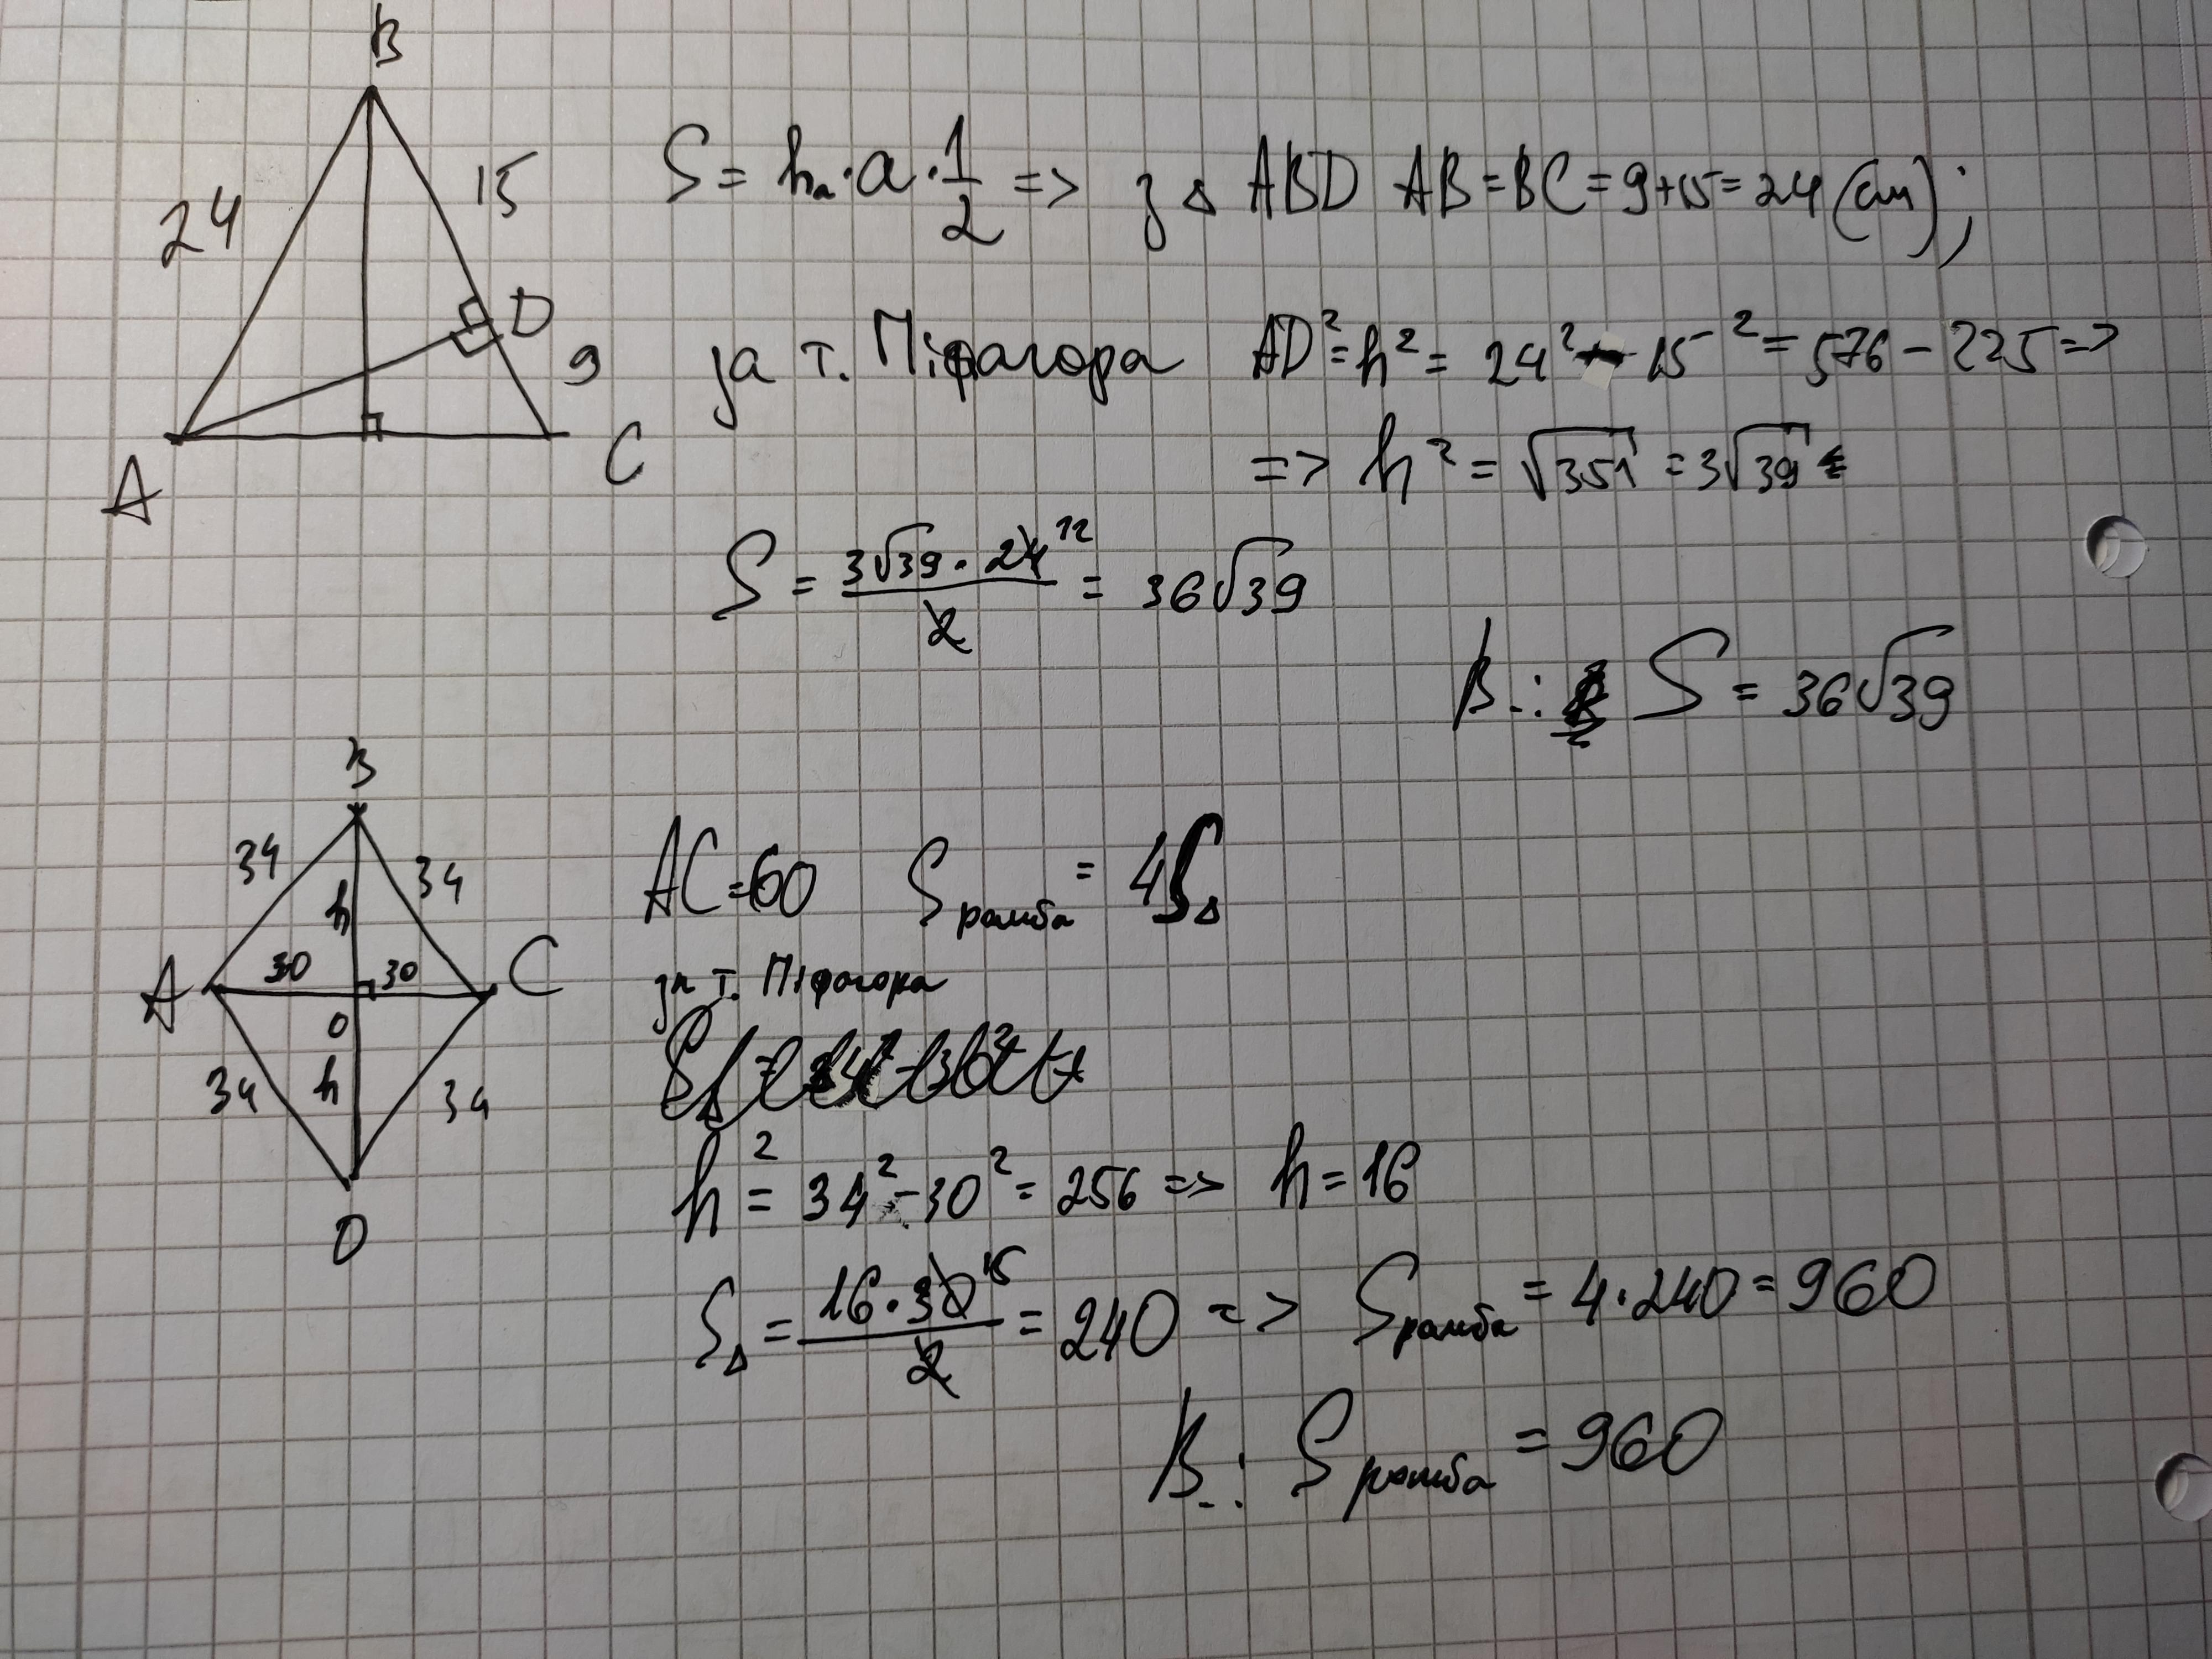 B
24
15
D
9
A
C
S = hₐ · a · 1/2 => з Δ ABD AB = BC = 9+15 = 24 (см);
за т. Піфагора AD² = h² = 24² - 15² = 576 - 225 =>
=> h² = √351 = 3√39
S = 3√39 · 24 12 / 2 = 36√39
В-: S = 36√39
B
34
34
h
A
30
30
C
O
34
h
34
D
AC = 60 S ромба = 4SΔ
за т. Піфагора
h² = 34² - 30² = 256 => h = 16
SΔ = 16 · 30 15 / 2 = 240 => S ромба = 4 · 240 = 960
В-: S ромба = 960